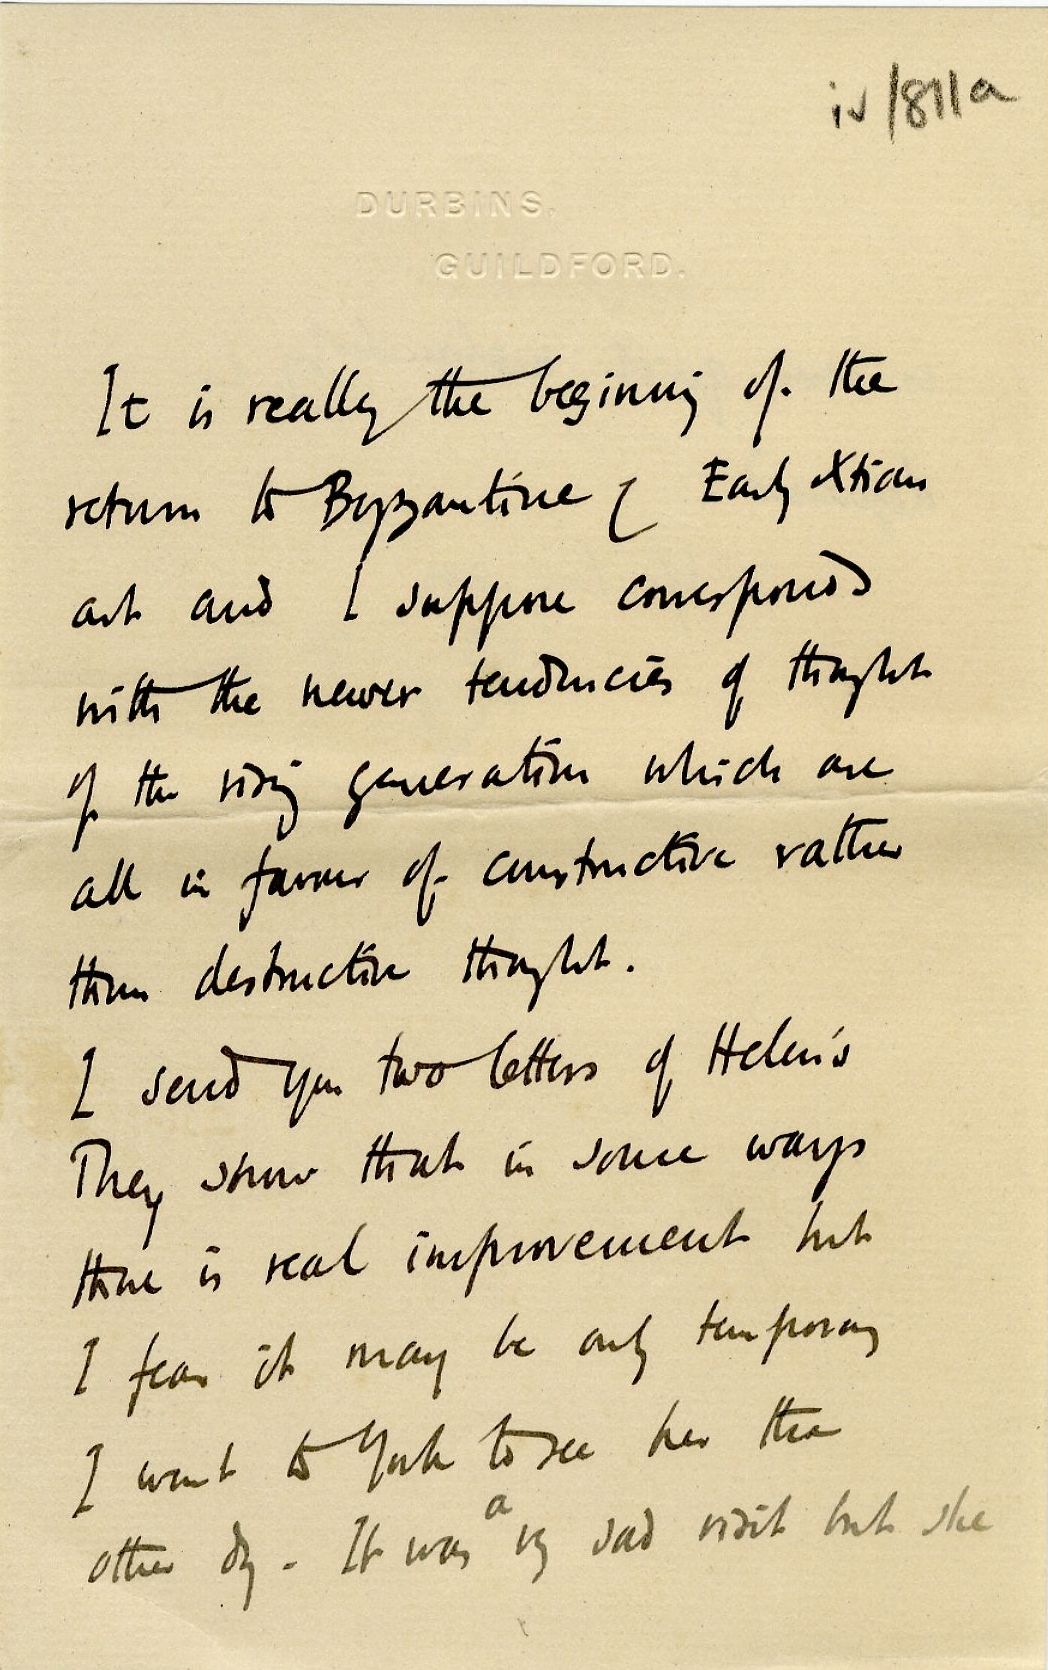 iv/811a
DURBINS.
GUILDFORD.
It is really the beginning of the
return to Byzantine & Early Xtian
art and I suppose corresponds
with the newer tendencies of thought
of the rising generation which are
all in favour of constructive rather
than destructive thought.
I send you two letters of Helen's
They show that in some ways
there is real improvement but
I fear it may be only temporary
I went to York to see her the
other dy - It was a vy sad visit but she